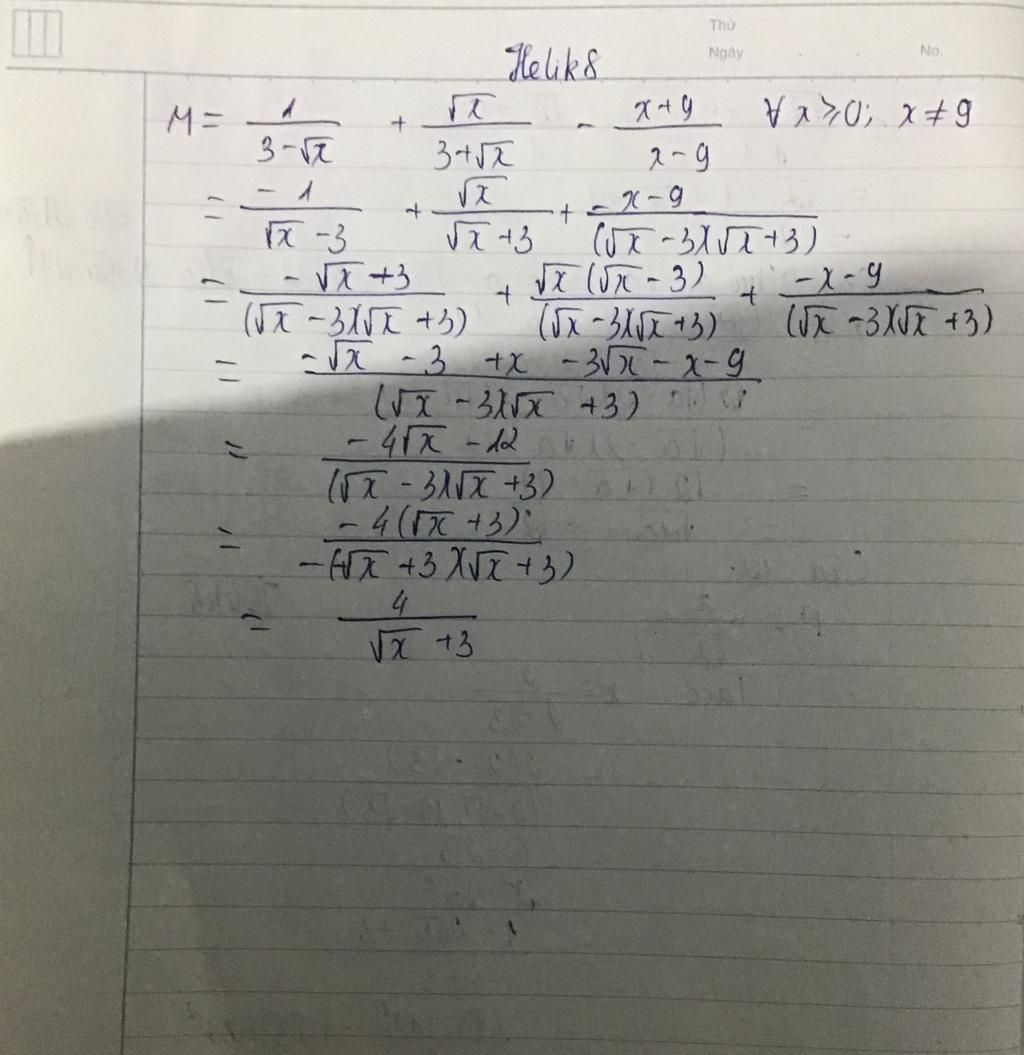 Thứ
Ngày No.
Helik8
M = 1/(3-√x) + √x/(3+√x) - (x+9)/(x-9) ∀ x ≥ 0; x ≠ 9
= -1/(√x-3) + √x/(√x+3) + (-x-9)/((√x-3)(√x+3))
= (-√x+3)/((√x-3)(√x+3)) + √x(√x-3)/((√x-3)(√x+3)) + (-x-9)/((√x-3)(√x+3))
= (-√x-3+x-3√x-x-9)/((√x-3)(√x+3))
= (-4√x-12)/((√x-3)(√x+3))
= -4(√x+3)/(-(-√x+3)(√x+3))
= 4/(√x+3)